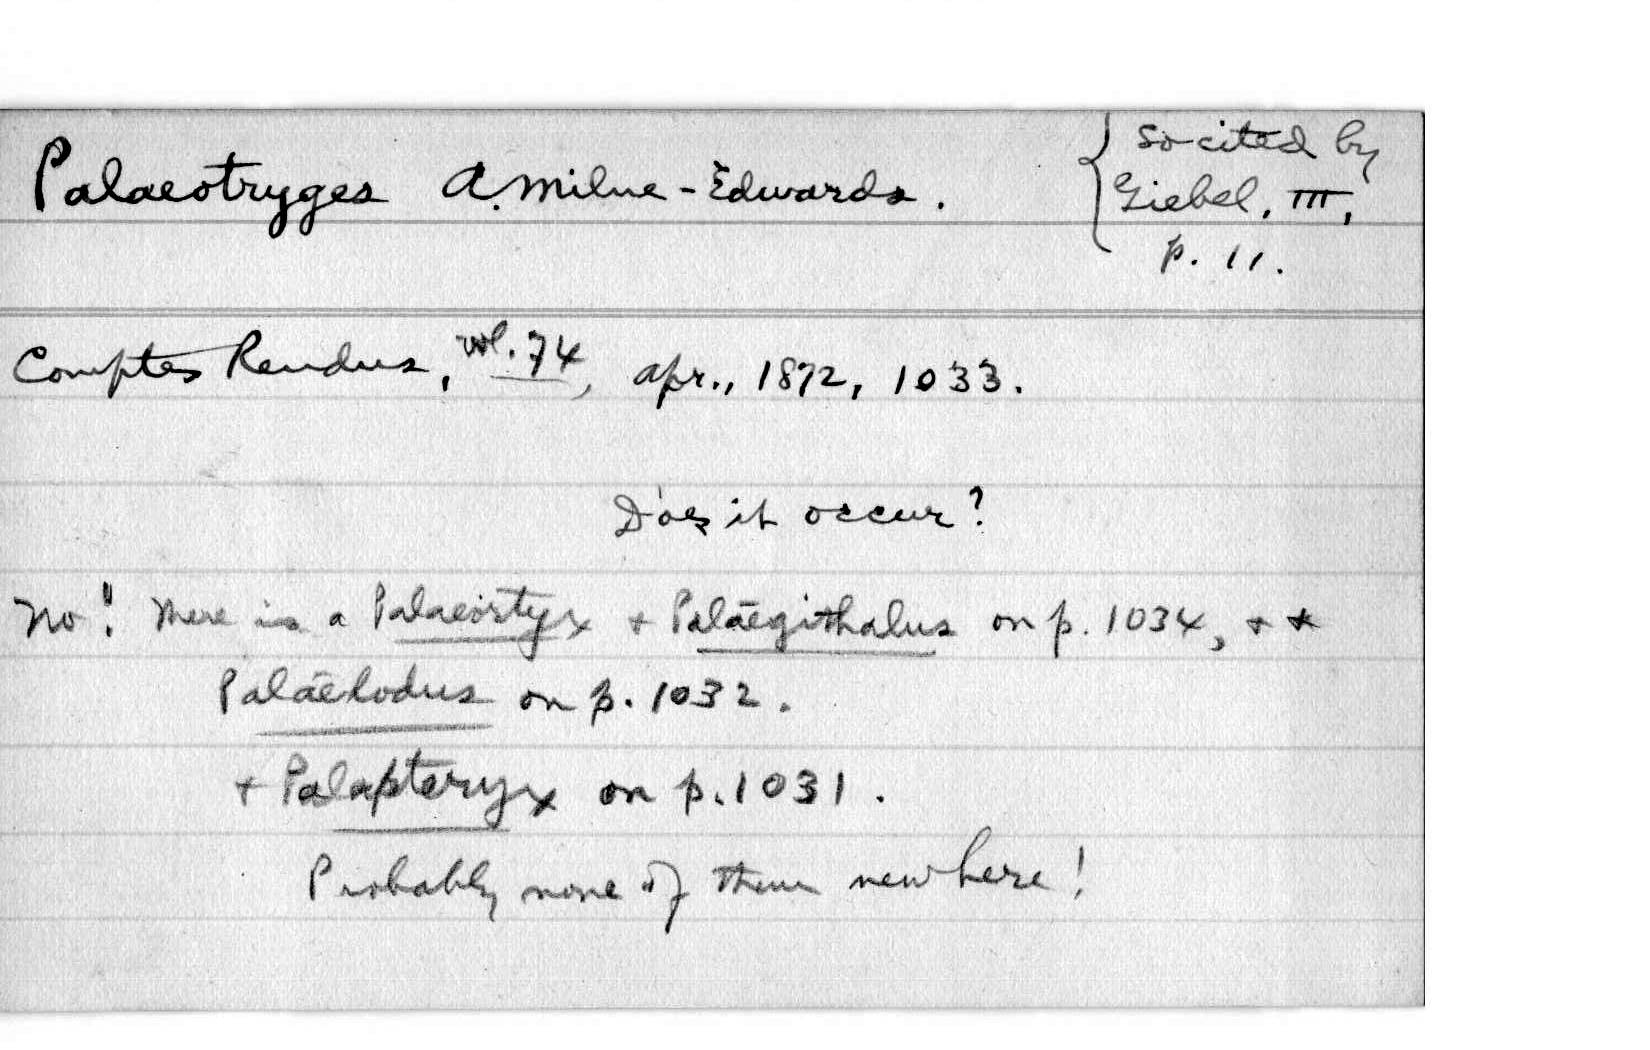 Palaeotryges A. Milne-Edwards.
{ So cited by
Giebel, III,
p. 11.
Comptes Rendus, vol. 74, Apr., 1872, 1033.
Does it occur?
No! There is a Palaeortyx + Palaegithalus on p. 1034, + *
Palaelodus on p. 1032.
+ Palapteryx on p. 1031.
Probably none of them new here!